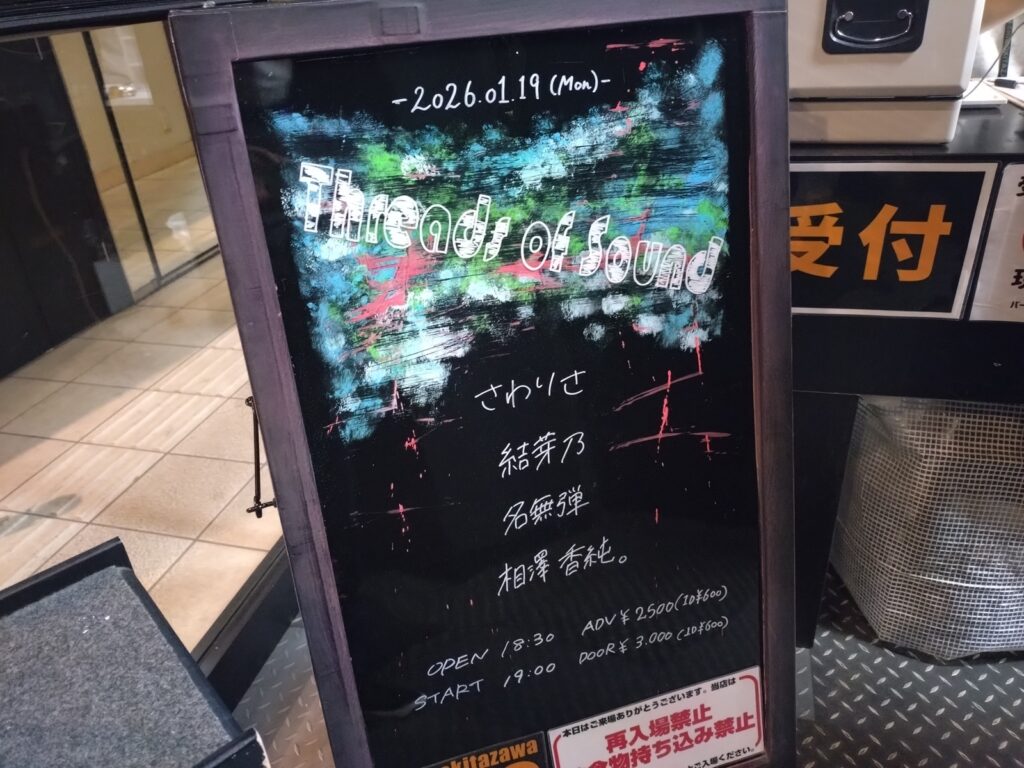 -2026.01.19(Mon)-
Threads of Sound
さわりさ
結芽乃
名無弾
相澤香純。
OPEN 18:30 ADV ¥2500(1D¥600)
START 19:00 DOOR ¥3.000(1D¥600)
本日はご来場ありがとうございます。当店は
再入場禁止
食物持ち込み禁止
ご入場ください。
okitazawa
受付